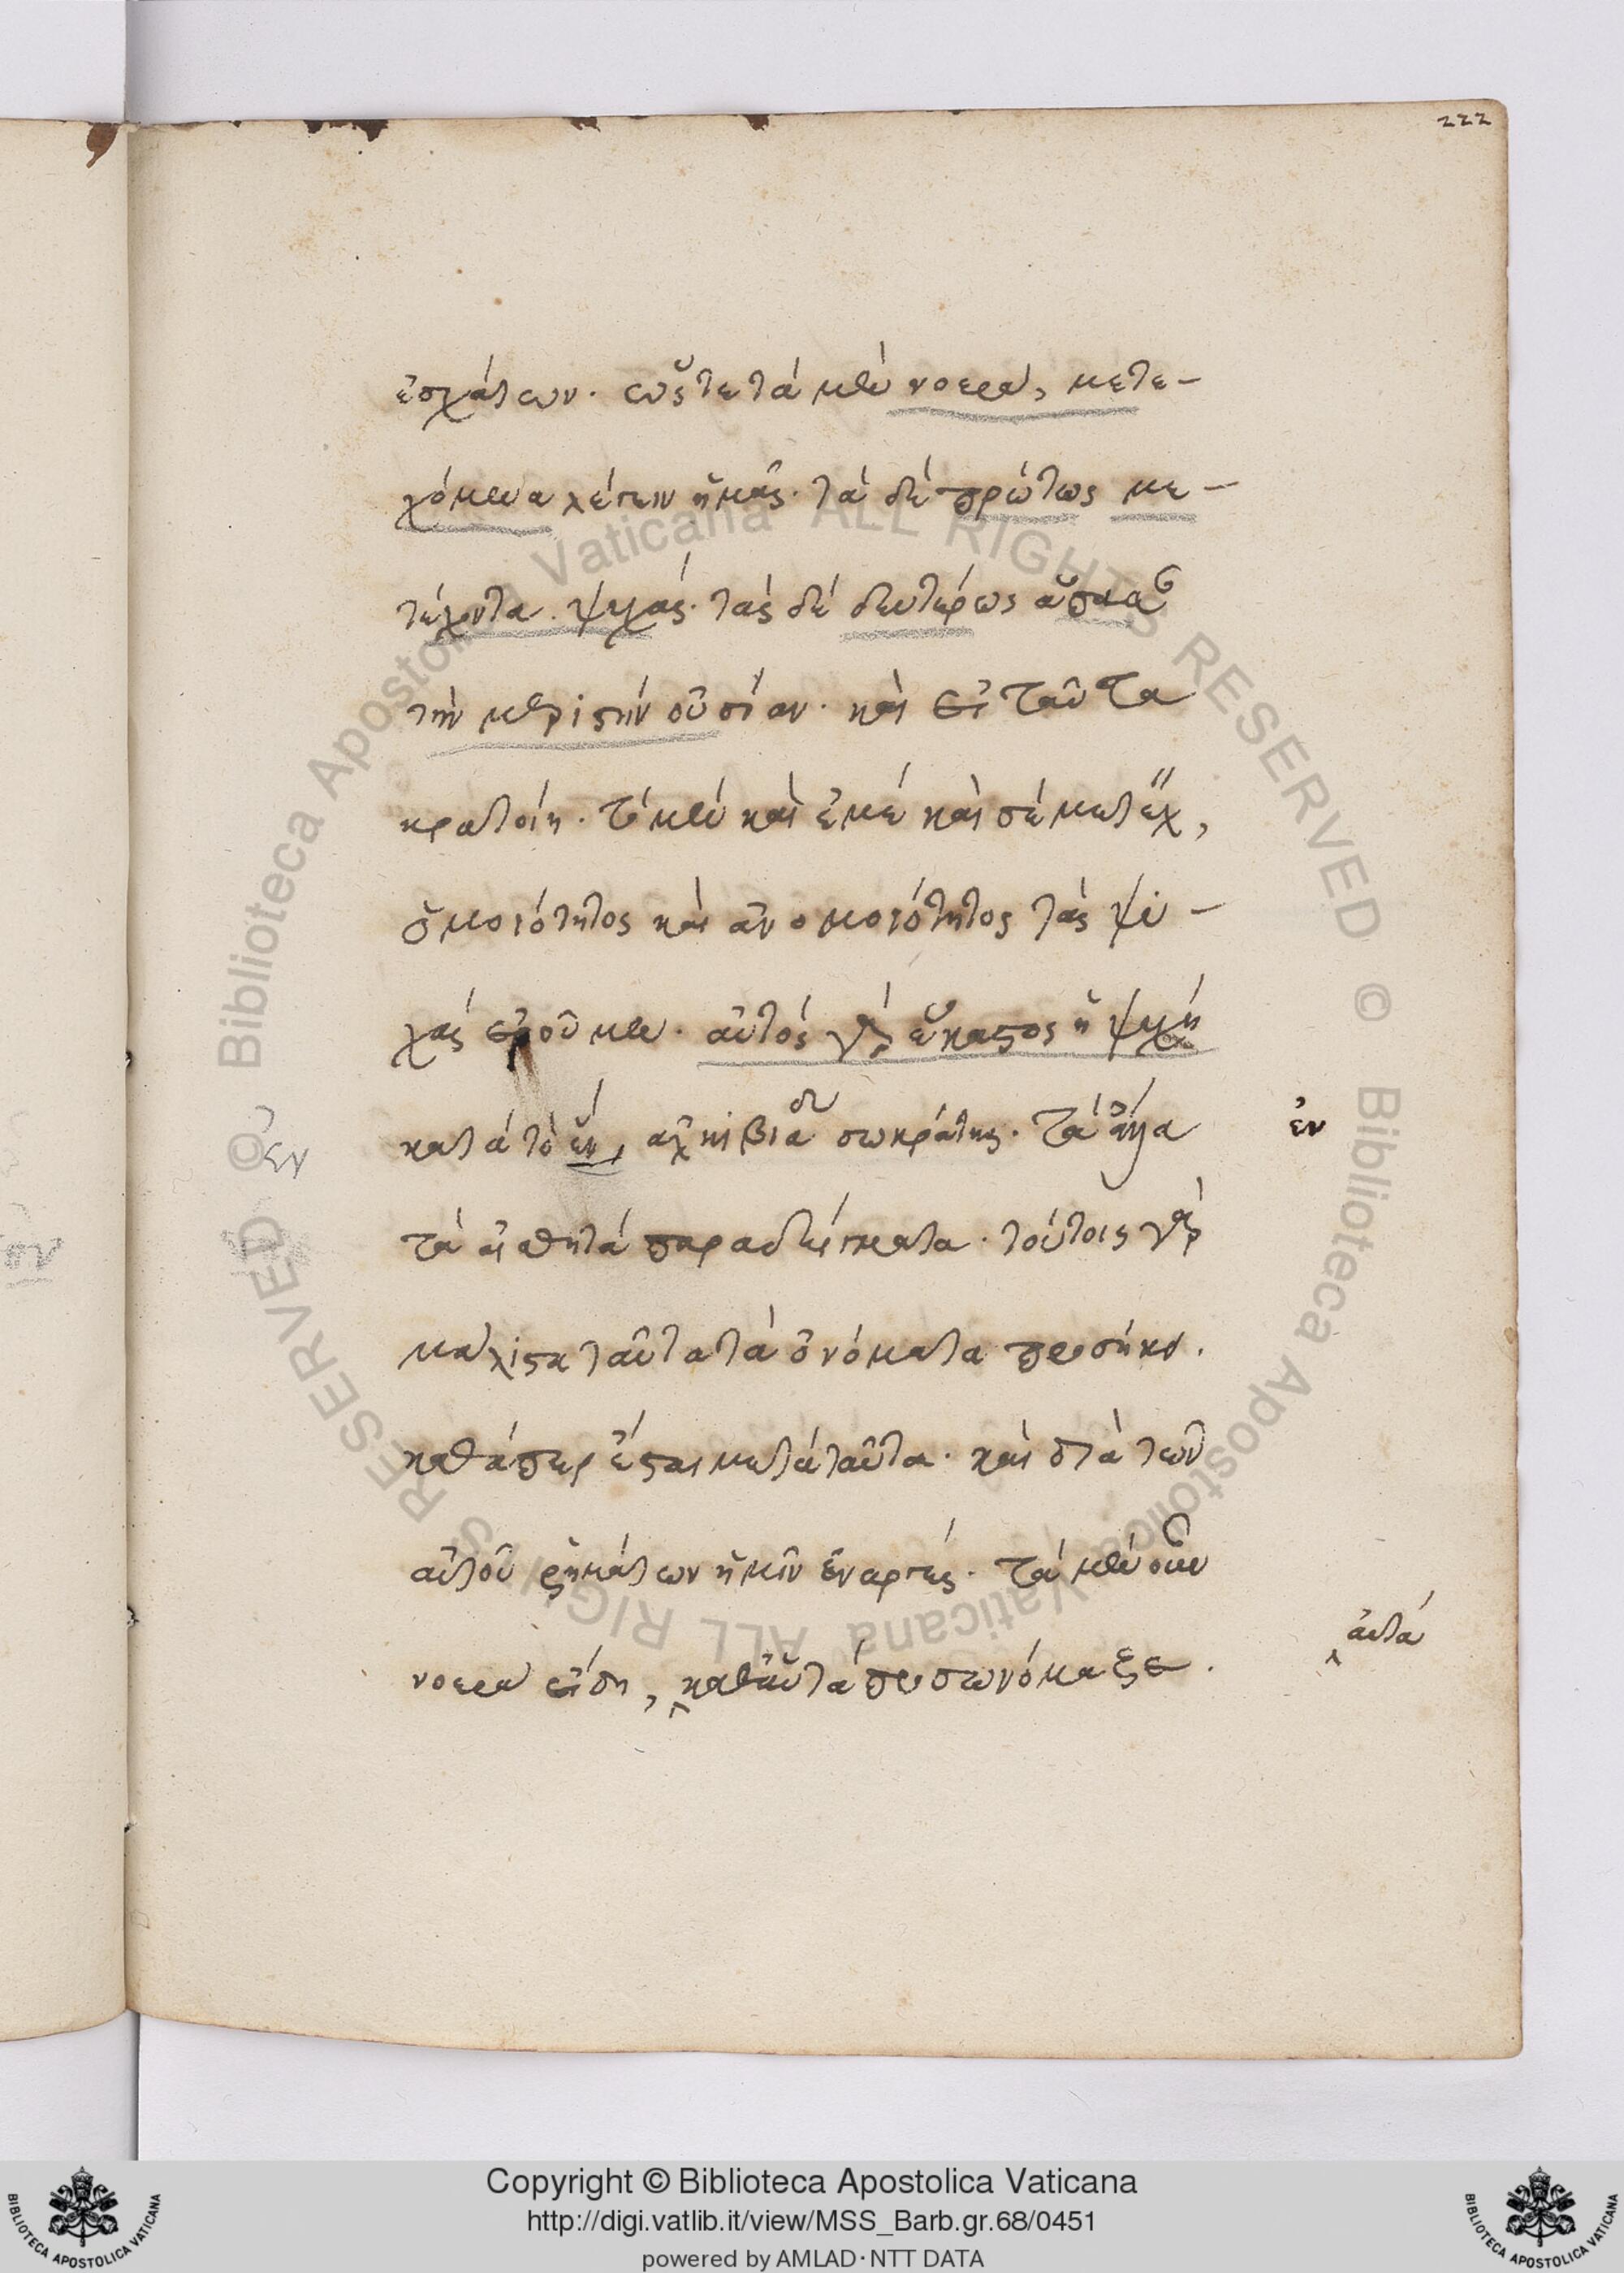 222
ἐσχάτων. ὥστε τὰ μὲν νοερὰ, μετε-
χόμενα λέγειν ἡμᾶς. τὰ δὲ πρώτως με-
τέχοντα ψυχάς. τὰς δὲ δευτέρως ἅπασαν
τὴν μεριστὴν οὐσίαν. καὶ εἰ ταῦτα
κρατοίη. τὸ μὲν καὶ ἐμὲ καὶ σὲ μετέχειν,
ὁμοιότητος καὶ ἀνομοιότητος τὰς ψυ-
χὰς ἐροῦμεν. αὐτὸς γὰρ ἕκαστος ἡ ψυχὴ
κατὰ τὸ ἓν, ἀλκιβιάδου σωκράτης. τὰ ἄλλα
ἐν
ἐν
τὰ αἰσθητὰ παραδείγματα. τούτοις γὰρ
μάλιστα ταῦτα τὰ ὀνόματα προσήκει.
καθάπερ ἔσται μετὰ ταῦτα. καὶ διὰ τῶν
αὐτοῦ ῥημάτων ἡμῖν ἐναργές. τὰ μὲν οὖν
νοερὰ εἴδη, καθ' αὑτὰ προσωνόμαξε.
αὐτὰ
Copyright © Biblioteca Apostolica Vaticana
http://digi.vatlib.it/view/MSS_Barb.gr.68/0451
powered by AMLAD·NTT DATA
BIBLIOTECA APOSTOLICA VATICANA
BIBLIOTECA APOSTOLICA VATICANA
© Biblioteca Apostolica Vaticana ALL RIGHTS RESERVED
© Biblioteca Apostolica Vaticana ALL RIGHTS RESERVED